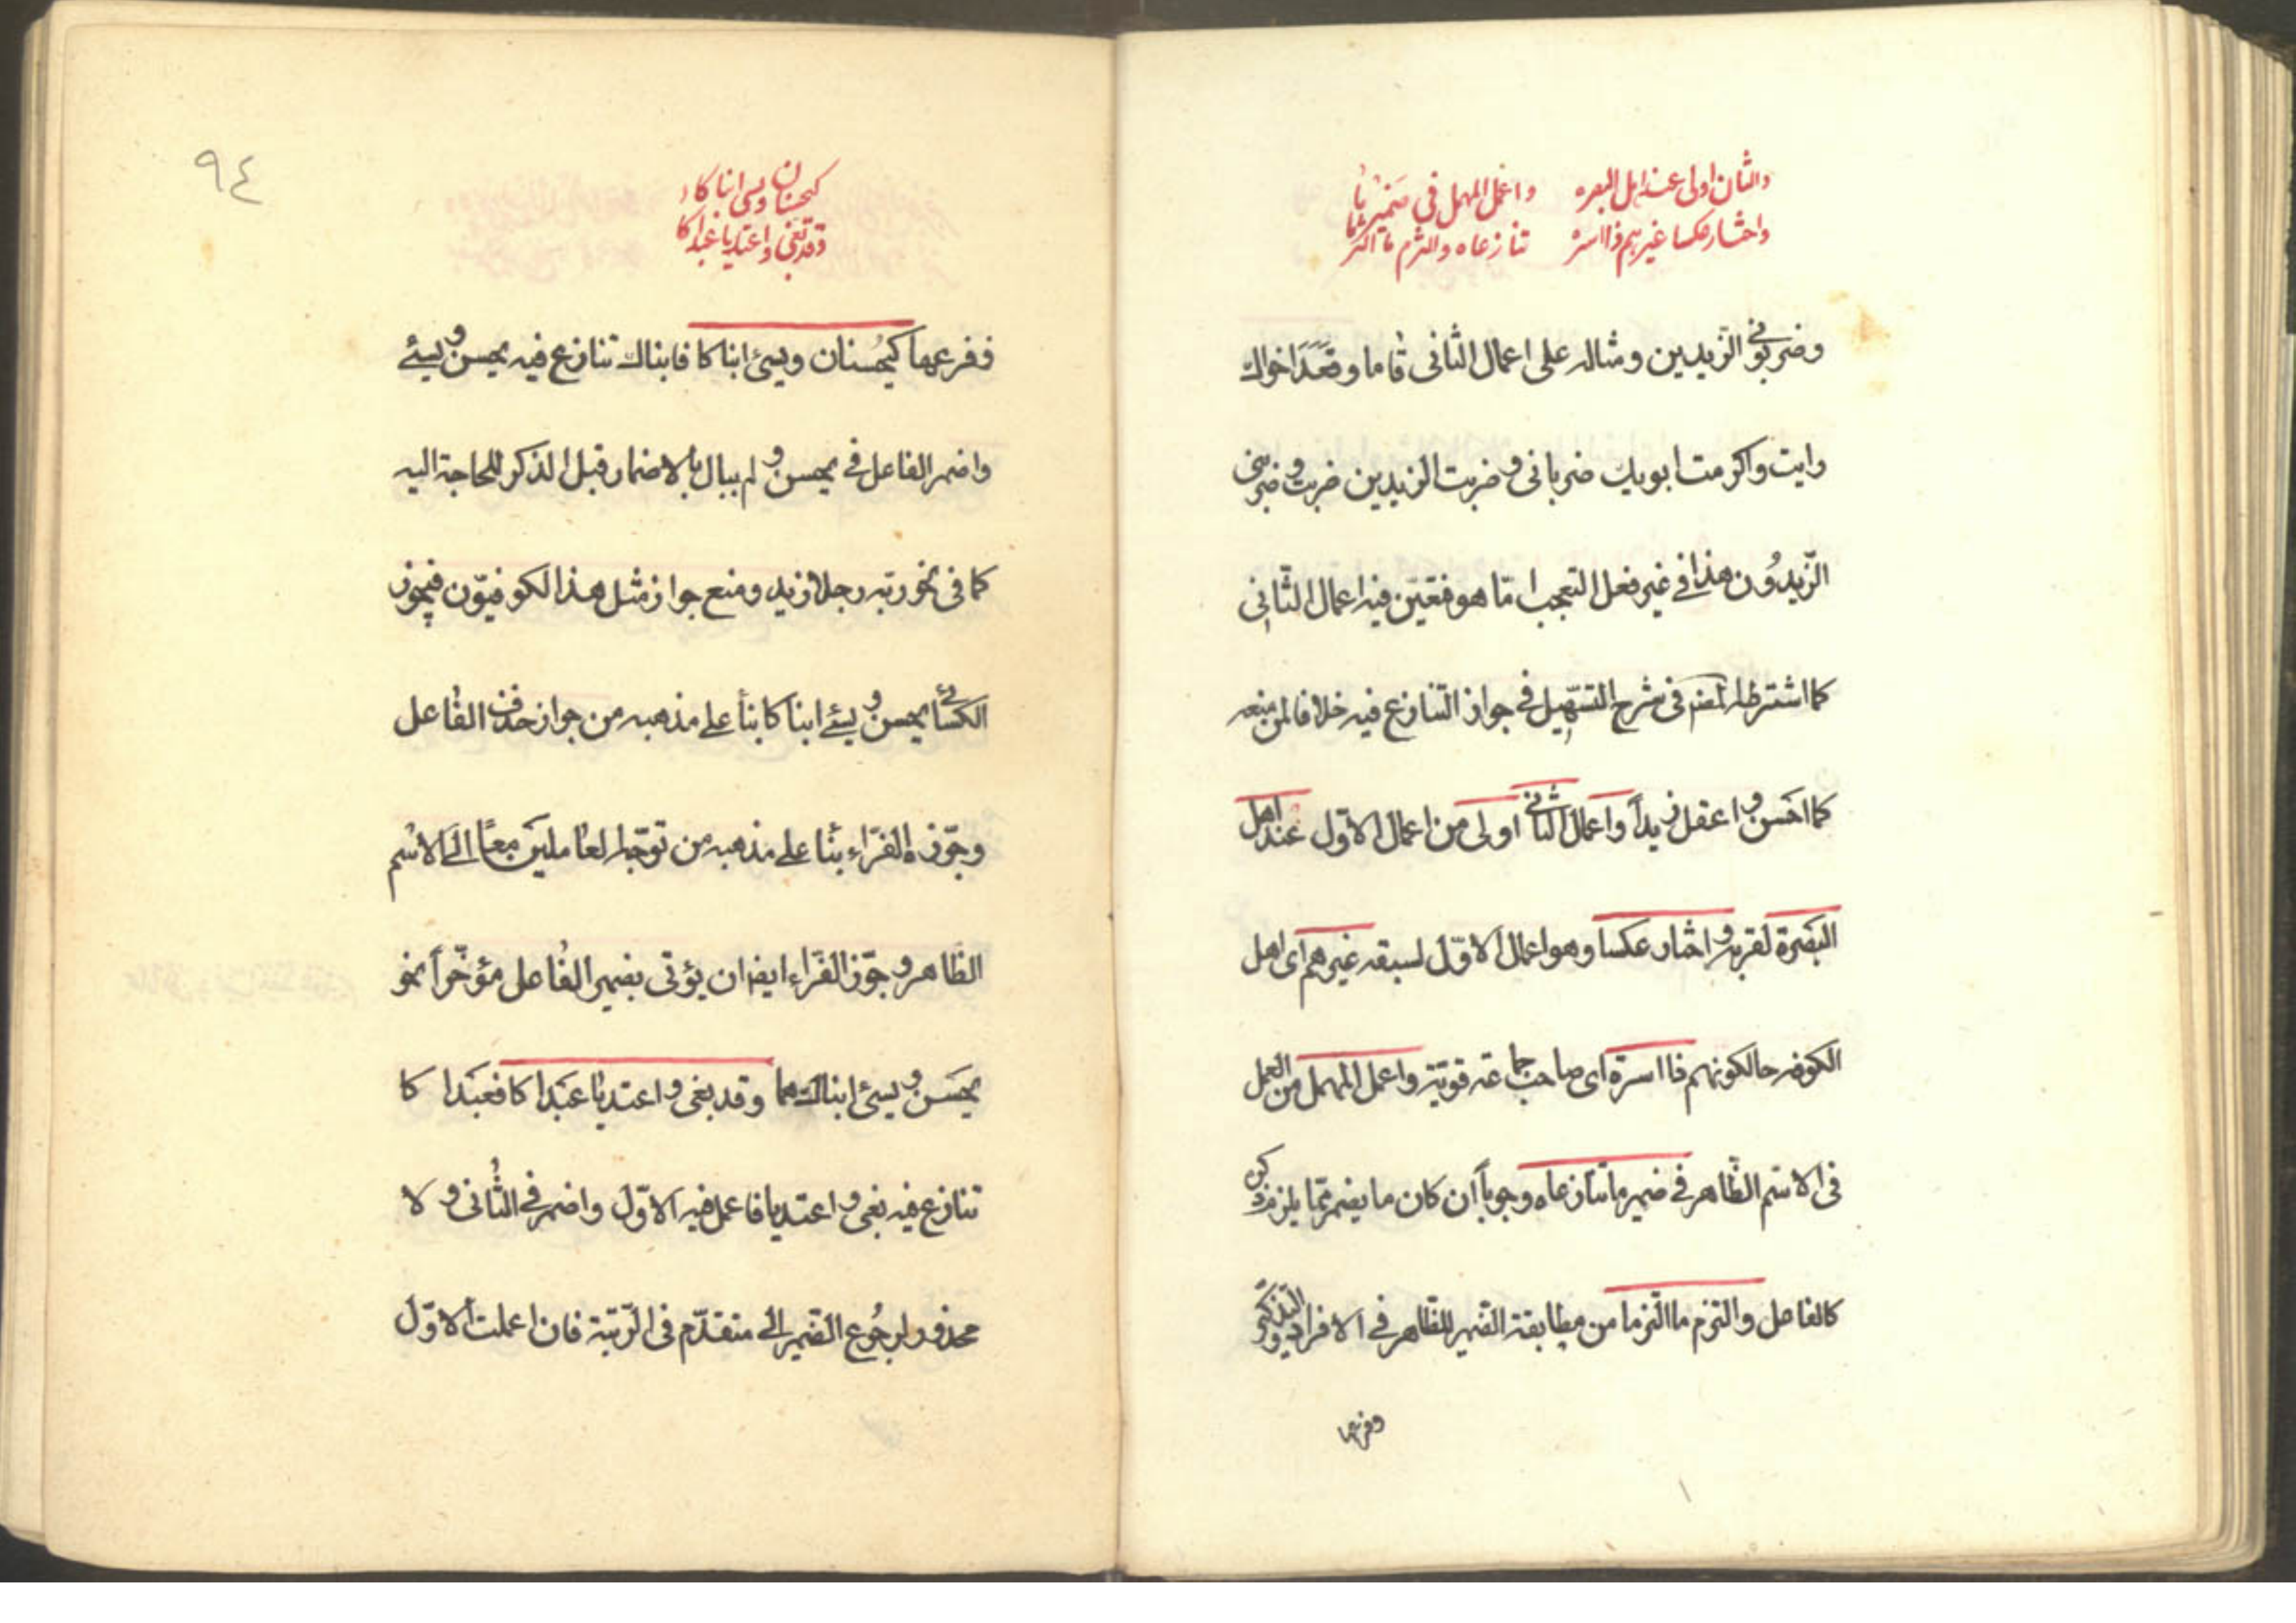 والثان اولى عند اهل البصره واعمل المهمل في ضمير ما
واختار عكسا غيرهم ذا اسره تنازعاه والتزم ما التزما
وضربونى الزيدين ومثاله على اعمال الثانى قاما وقعد اخواك
رايت واكرمت ابويك ضربانى وضربت الزيدين ضربت وضربنى
الزّيدُون هذا فى غير فعل التعجب امّا هو فتعيّن فيه اعمال الثّانى
كما اشترطه المصنم فى شرح التسهيل فى جواز التنازع فيه خلافا لمن منعه
كما احسن واعقل زيداً واعمال الثانى اولى من اعمال الاوّل عند اهل
البَصَرة لقربه واختار عكسا وهو اعمال الاوّل لسبقه غيرهم اى اهل
الكوفه حالكونهم ذا اسرة اى صاحب جماعة قويّة واعمل المهمل من العمل
فى الاسم الظّاهر فى ضمير ما تنازعاه وجوباً ان كان ما يضمر ممّا يلزم ذكره
كالفاعل والتزم ما التزما من مطابقة الضمير للظّاهر فى الافراد والتذكير
وفرعهما
٩٤
كيحسنان ويسى ابناكا
وقد بغى واعتديا عبداكا
ففرعهما كيُحسنان ويسئ ابناكا فابناك تنازع فيه يحسن ويسئ
واضمر الفاعل فى يحسن ولم يبال بالاضمار قبل الذكر للحاجة اليه
كما فى نحو ربّه رجلا زيد ومنع جواز مثل هذا الكوفيّون فيجوز
الكسائى يحسن ويسئ ابناكا بنأ على مذهبه من جواز حذف الفاعل
وجوّزه الفرّاء بنأ على مذهبه من توجّه العاملين معاً الى الاسم
الظاهر وجوّز الفرّاء ايضا ان يؤتى بضمير الفاعل مؤخّراً نحو
يحسن ويسئ ابناك هما وقد بغى واعتديا عبداكا فعبدا كا
تنازع فيه بغى واعتديا فاعمل فيه الاوّل واضمر فى الثّانى ولا
محذور لرجُوع الضّمير الى متقدّم فى الرّتبة فان اعملت الاوّل